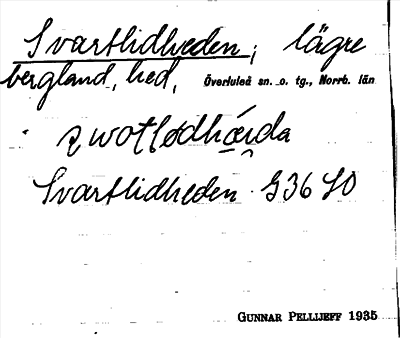 Svartlidheden; lägre
bergland, hed, Överluleå sn. o. tg., Norrb. län
Svartlidheden G36 SO
GUNNAR PELLIJEFF 1935